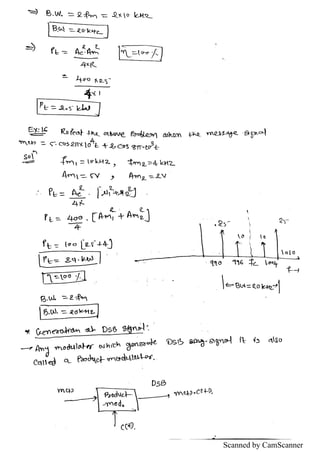 ⇒ B.W. = 2fm = 2x10 kHz
BW = 20kHz
⇒ Pt = Ac².Am² / 4xR   η=100%
= 400 x25 / 4x1
Pt = 2.5 kW
Ex:16 Repeat the above Problem when the message signal
m(t) = 5.cos2πx10⁴t + 2.cos 8π.10³t
Sol
fm₁ = 10kHz, fm2=4 kHz
Am₁ = 5V, Am2 = 2V
Pt = 400/4 . [Am₁² + Am2²]
Pt = 100 [25+4]
η=100%
B.W = 2.fm
B.W = 20kHz
25 25
10 10
990 996 fc 1004 1010
f→
BW=20kHz
* Generation of DSB Signal:
→ Any modulator which generate DSB signal it is also
called a Product modulator.
DSB
m(t) → Product mod. → m(t).c(t)
c(t).
Scanned by CamScanner